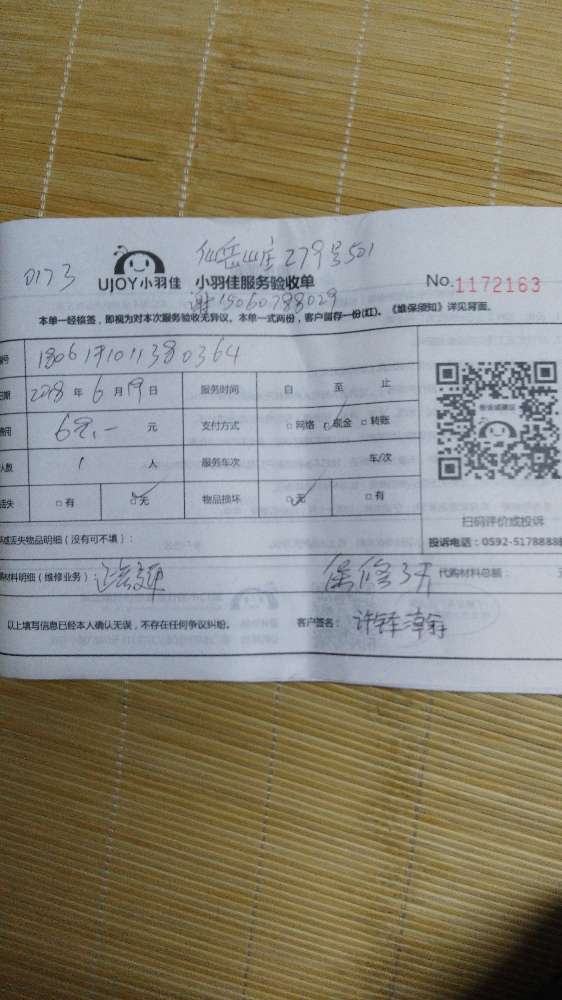 仙岳山庄279号501
0173 UJOY小羽佳 小羽佳服务验收单 No.1172163
谢18060788029
本单一经核签，即视为对本次服务验收无异议。本单一式两份，客户留存一份(红)。《维保须知》详见背面。
号 180619101138 0364
日期 2018 年 6 月 19 日 服务时间 自 至 止
费用 68.— 元 支付方式 □网络 ☑现金 □转账
人数 1 人 服务车次 车/次
丢失 □有 ☑无 物品损坏 ☑无 □有
或丢失物品明细（没有可不填）：
扫码评价或投诉
投诉电话：0592-5178888
材料明细（维修业务） 保修3天 代购材料总额：
以上填写信息已经本人确认无误，不存在任何争议纠纷。 客户签名：